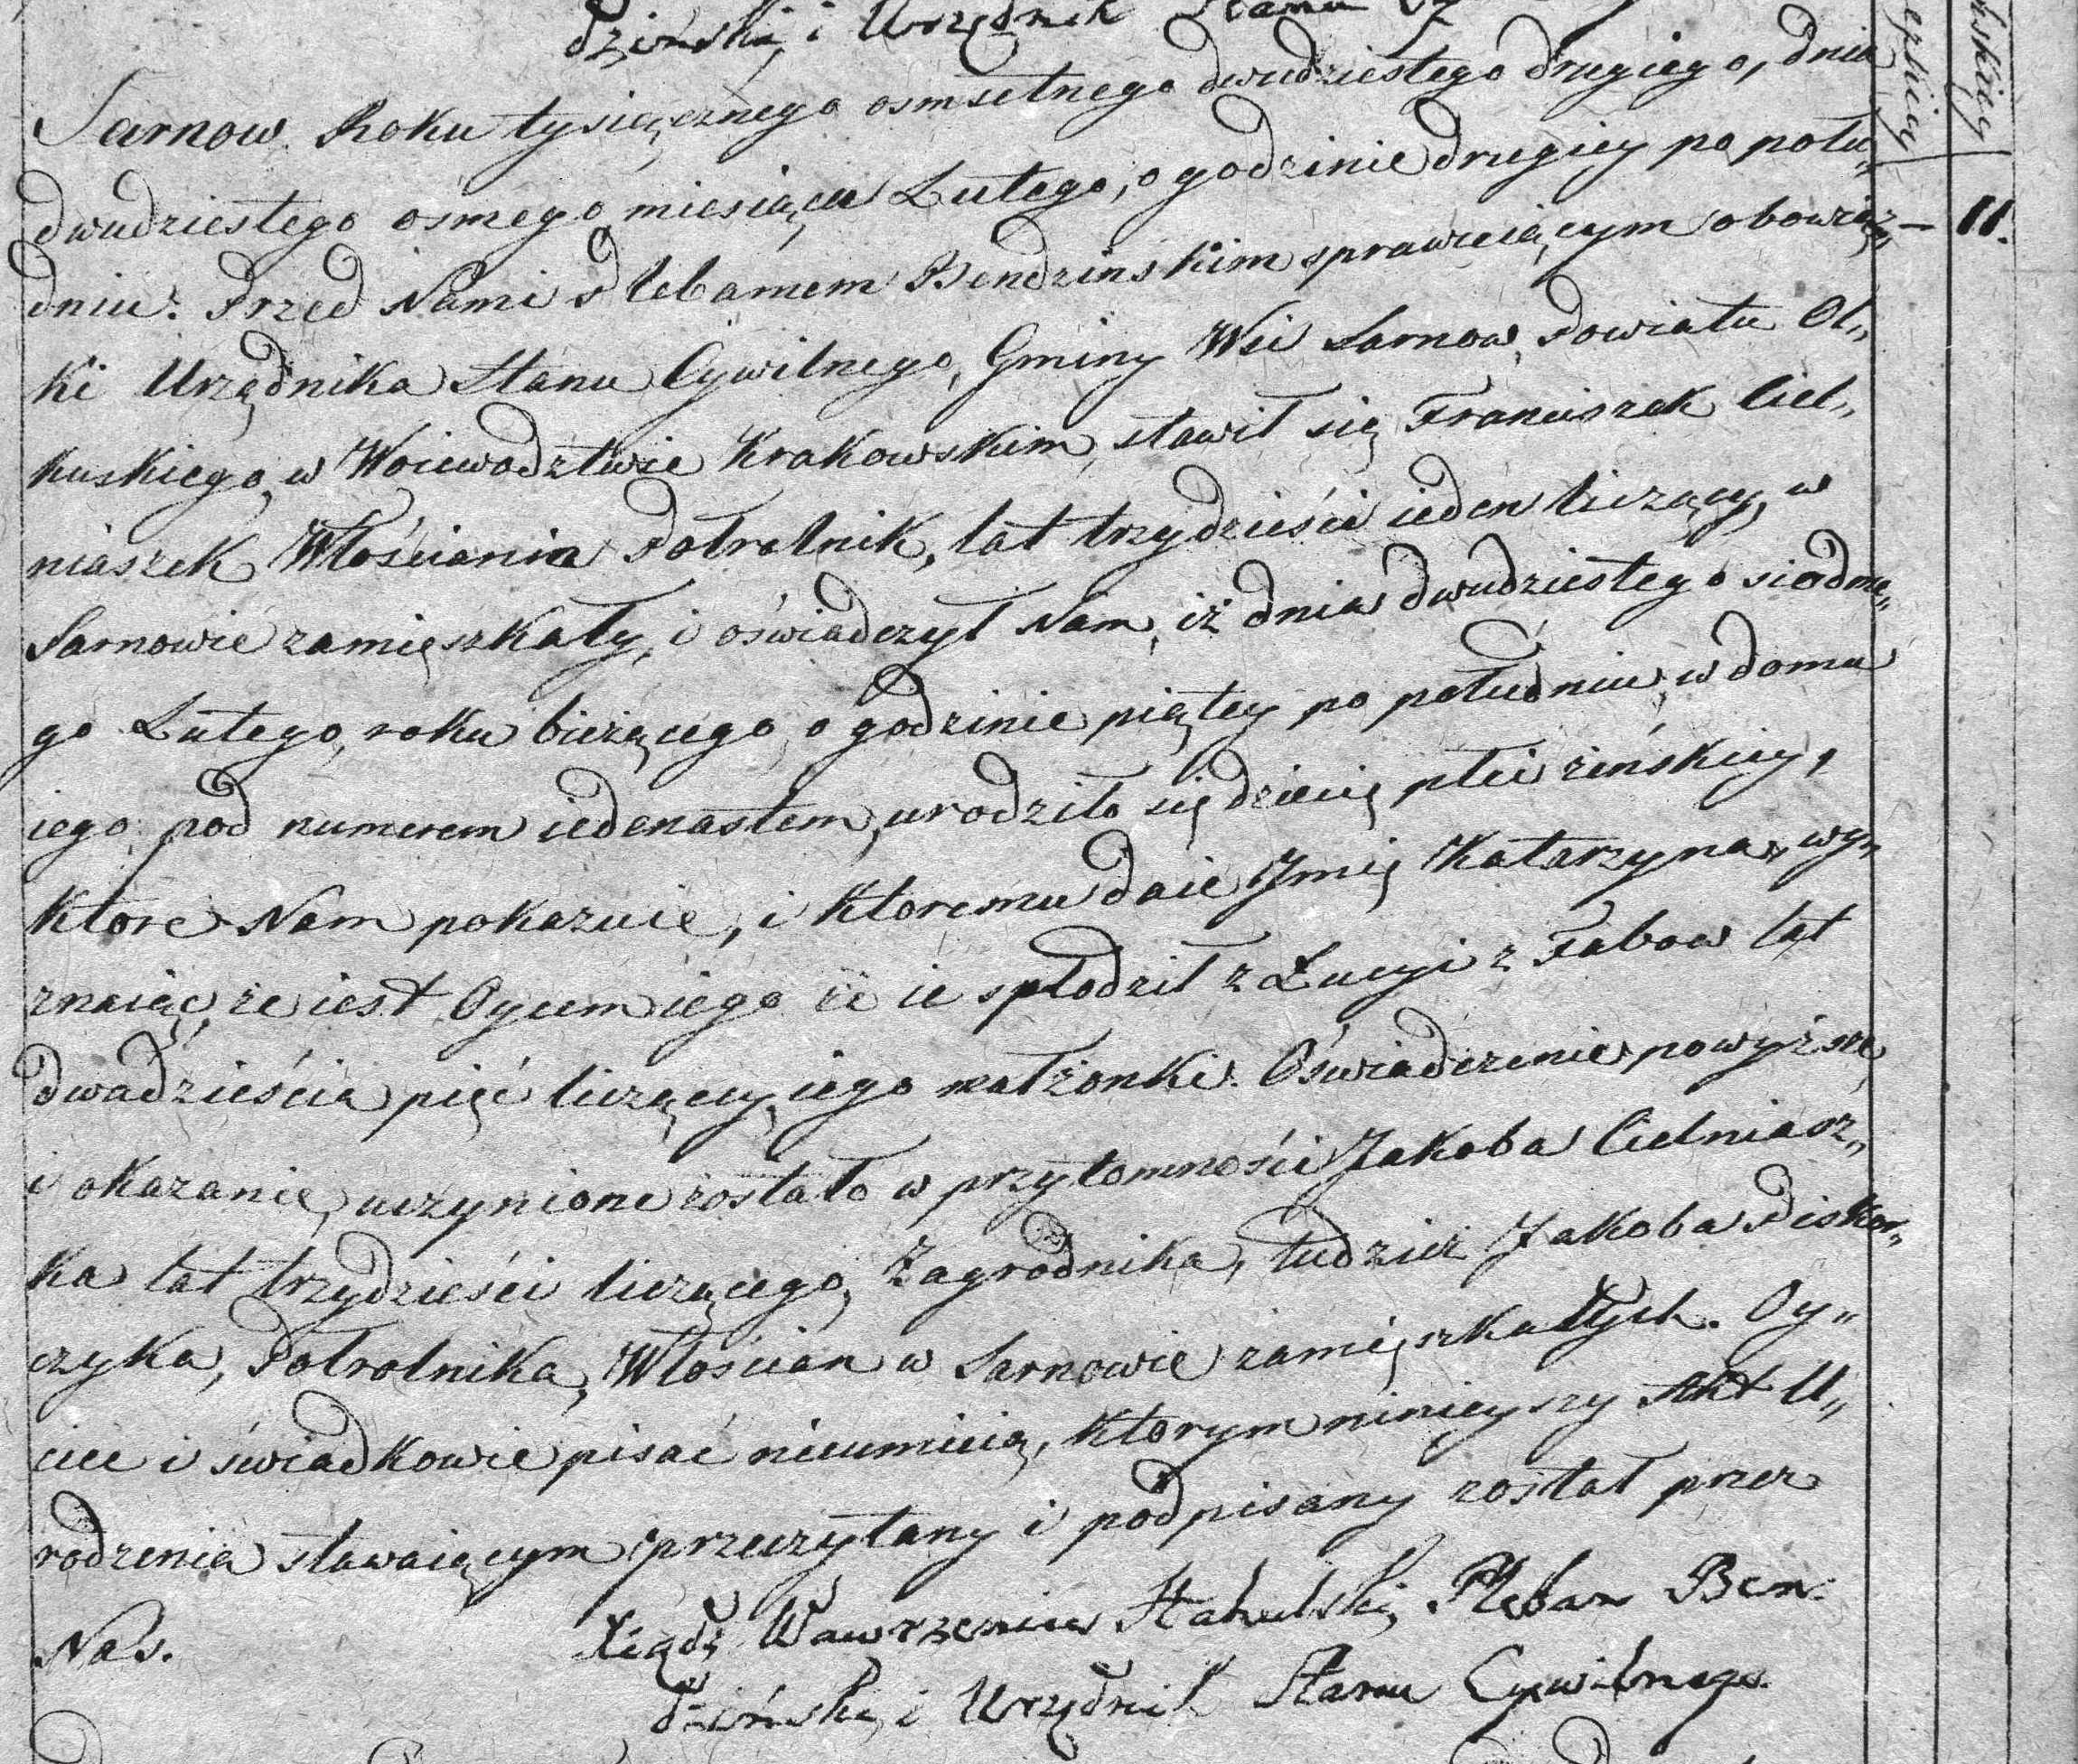 dzinski i Urzędnik Stanu
Sarnow. Roku tysiącznego osmsetnego dwudziestego drugiego, dnia
dwudziestego osmego miesiąca Lutego, o godzinie drugiey po połu„
dniu. Przed Nami Plebanem Bendzinskim sprawuiącym obowiąz„
ki Urzędnika Stanu Cywilnego, Gminy Wsi Sarnow, Powiatu Ol„
kuskiego, w Woiewodztwie Krakowskim, stawił się Franciszek Ciel„
niaszek Włościanin Połrolnik, lat trzydzieści ieden liczący, w
Sarnowie zamięszkały, i oświadczył Nam, iż dnia dwudziestego siodme„
go Lutego, roku bieżącego o godzinie piątey po południu, w domu
iego pod numerem iedenastem, urodziło się dziecię płci zińskiey,
ktore Nam pokazuie, i ktoremu daie Imię Katarzyna, wy„
znaiąc, że iest Oycem iego że ie spłodził z Łucyi z Fabow lat
dwadzieścia pięć liczącey, iego małżonki. Oświadczenie powyższe
i okazanie, uczynione zostało w przytomności Jakoba Cielniasz„
ka lat trzydzieści liczącego, Zagrodnika, tudzież Jakoba Piskor„
czyka, Połrolnika, Włościan w Sarnowie zamięszkałych. Oy„
ciec i świadkowie pisać nieumieią, ktorym ninieyszy Akt U„
rodzenia stawaiącym przeczytany i podpisany został przez
Nas. Xiądz Wawrzeniec Stahulski Pleban Ben:
dziński i Urzędnik Stanu Cywilnego.
11.